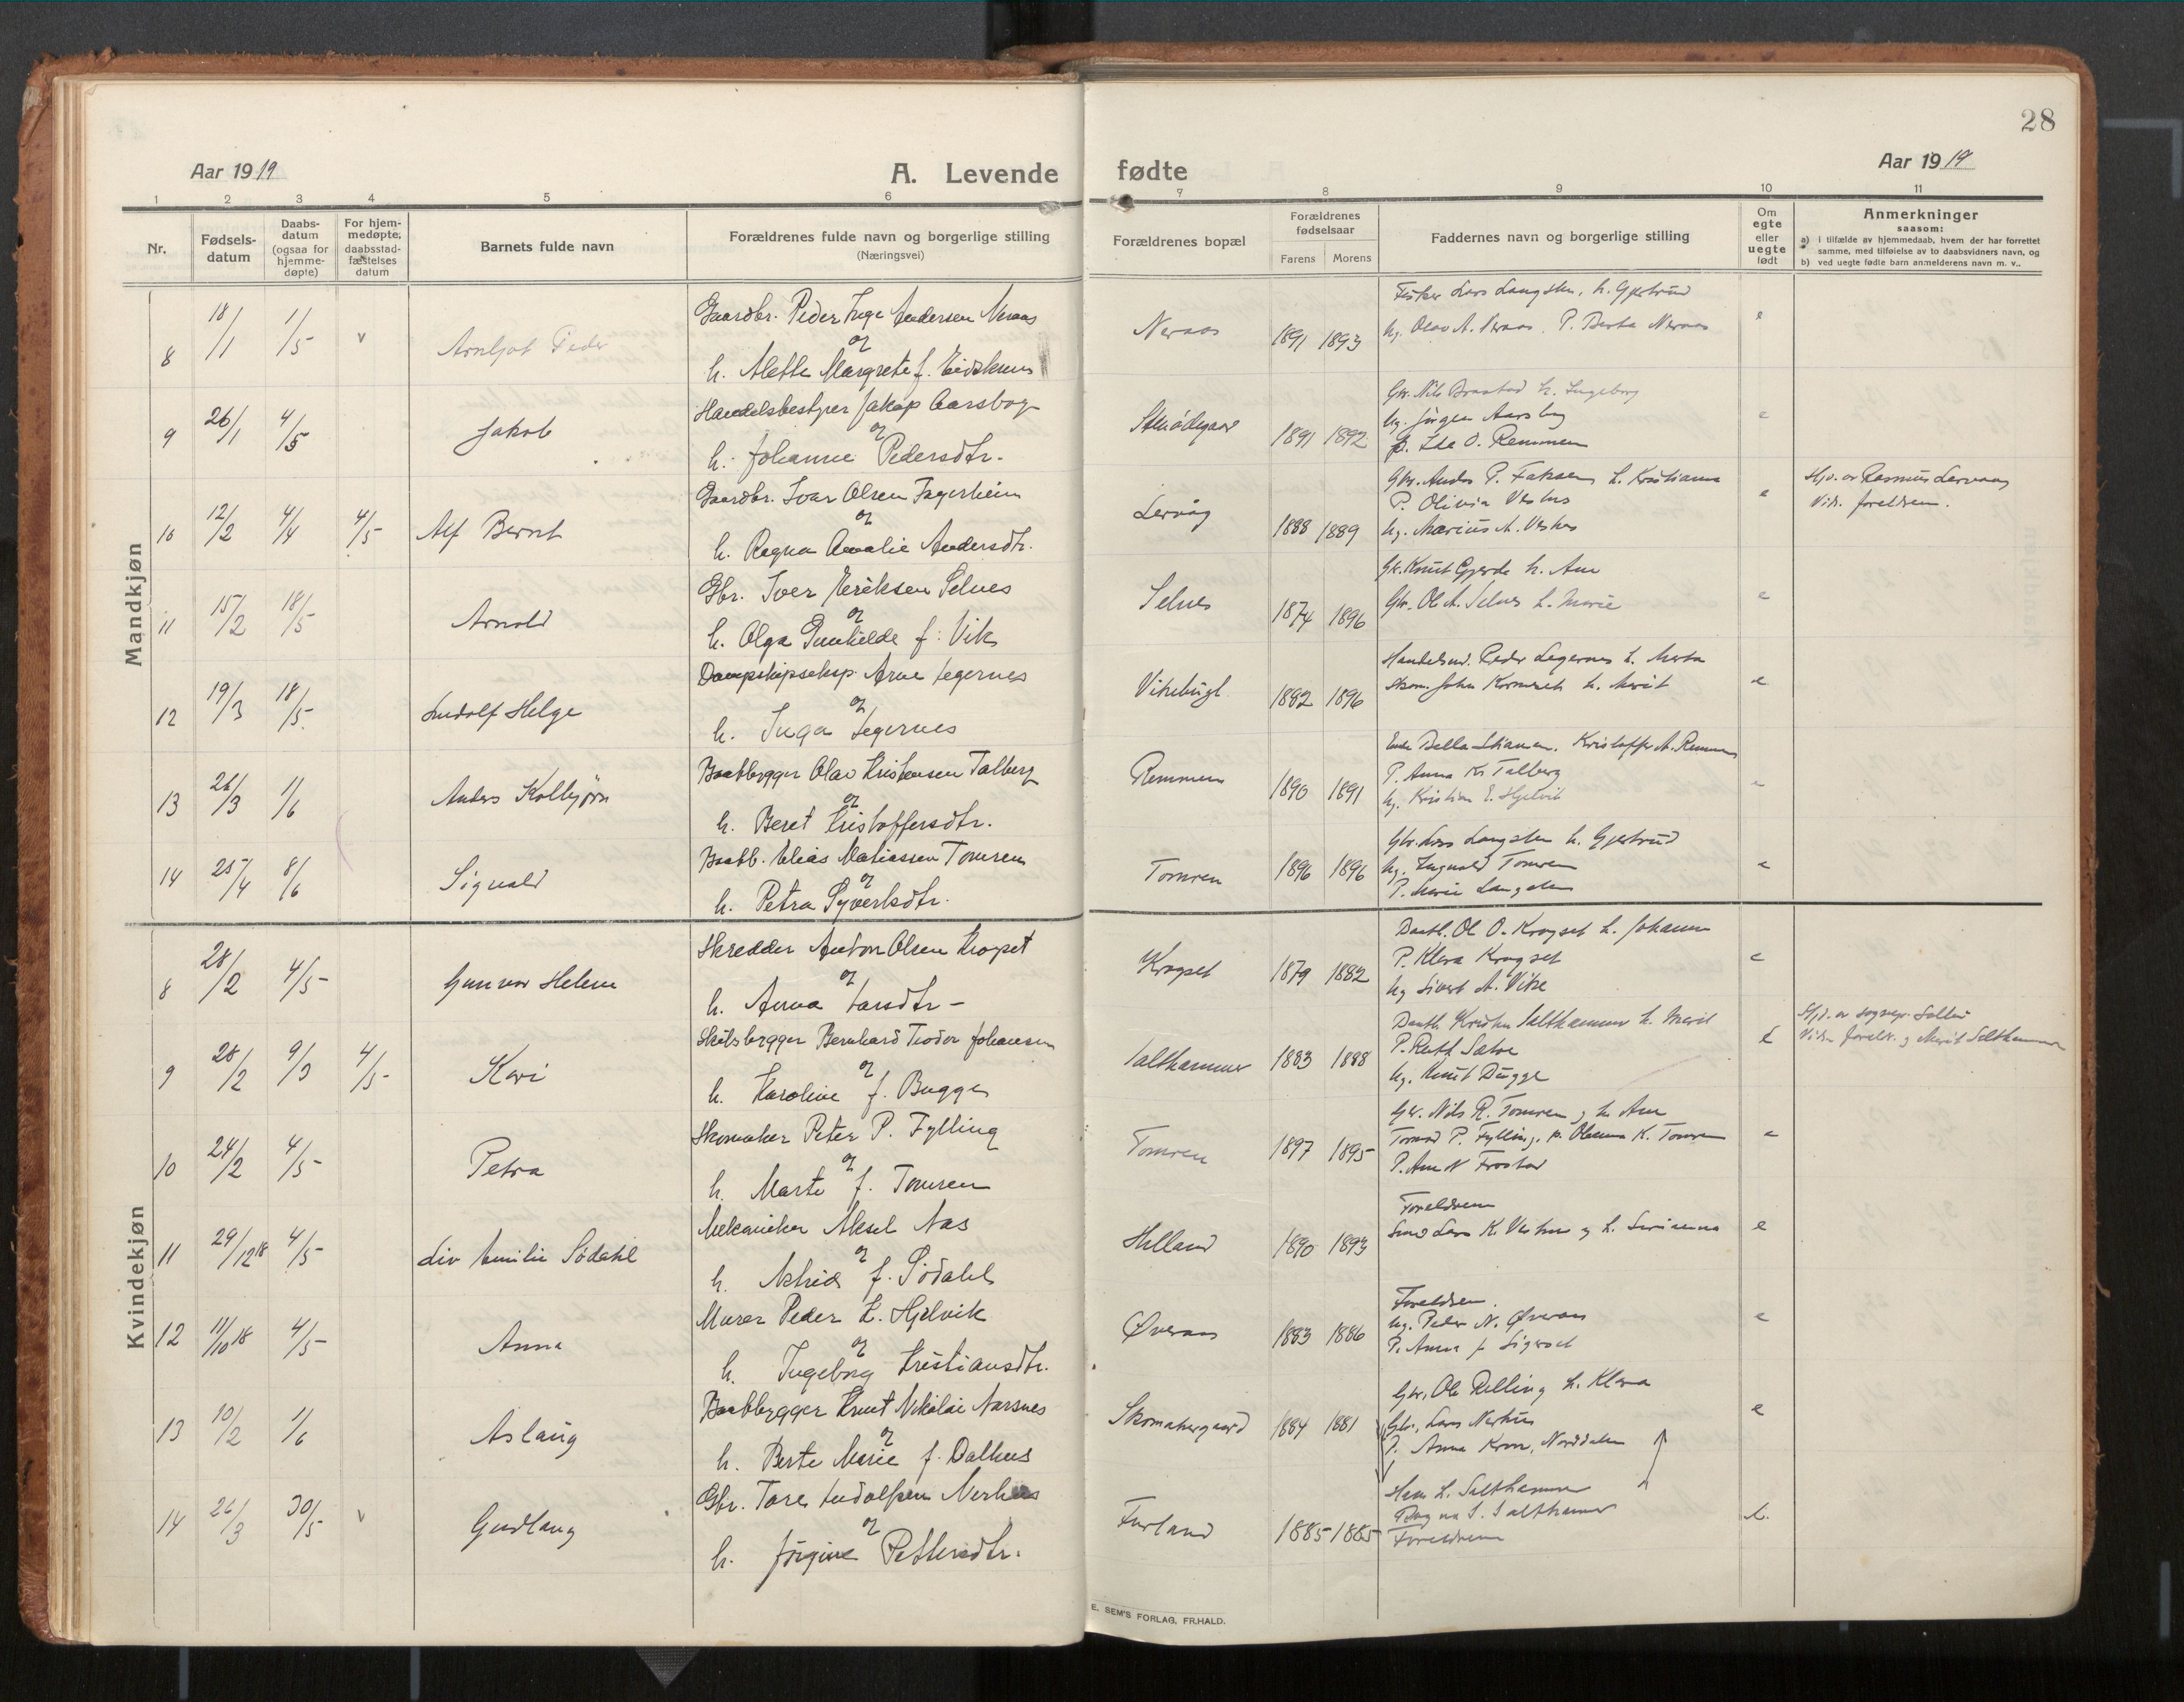 28
Aar 1919
A. Levende fødte
Aar 1919
1 2 3 4 5 6 7 8 9 10 11
Nr.
Fødsels-
datum
Daabs-
datum
(ogsaa for
hjemme-
døpte)
For hjem-
medøpte,
daabsstad-
fæstelses
datum
Barnets fulde navn
Forældrenes fulde navn og borgerlige stilling
(Næringsvei)
Forældrenes bopæl
Forældrenes
fødselsaar
Farens Morens
Faddernes navn og borgerlige stilling
Om
egte
eller
uegte
født
Anmerkninger
saasom:
a) i tilfælde av hjemmedaab, hvem der har forrettet
samme, med tilføielse av to daabsvidners navn, og
b) ved uegte fødte barn anmelderens navn m. v..
Mandkjøn
8 18/1 1/5 v Arnljot Peder
Gaardbr. Peder Inge Andersen Neraas
og
h. Alette Margrete f. Eidskrem
Neraas 1891 1893
Fisker Lars Langsten, h. Gjertrud
Ug. Olav A. Neraas. P. Berta Neraas
e
9 26/1 4/5 Jakob
Handelsbestyrer Jakop Aarsbog
og
h. Johanne Pedersdtr.
1891 1892
Gbr. Nils Brastad h. Ingeborg
Ug. Jørgen Aarsbog
p. Ida O. Remmen
e
10 12/2 4/4 4/5 Alf Bernt
Gaardbr. Ivar Olsen Fagerheim
og
h. Ragna Amalie Andersdtr.
Lervåg 1888 1889
Gbr. Anders P. Faksen h. Kristianna
P. Olivia Vestnes
Ug. Marius A. Vestnes
e
Hjd. av Rasmus Lervaag
Vidn. foreldrene.
11 15/2 18/5 Arnold
Gbr. Iver Eriksen Selnes
og
h. Olga Gunhilde f. Vik
Selnes 1874 1896
Gbr. Knut Gjerde h. Ane
Gbr. Ole A. Selnes h. Marie
e
12 19/3 18/5 Ludolf Helge
Dampskipseksp. Arne Legernes
og
h. Inga Legernes
Vikebugt 1882 1896
Handelsmd. Peder Legernes h. Marta
Skom. John h. Marit
e
13 26/3 1/6 Anders Kolbjørn
Baatbygger Olav Kristensen Talberg
og
h. Beret Kristoffersdtr.
Remmem 1890 1891
Enke Kristoffer A. Remmem
P. Anna Kr. Talberg
Ug. Kristian E. Hjelvik
e
14 25/4 8/6 Sigvald
Baatb. Elias Matiassen Tomren
og
h. Petra Syvertsdtr.
Tomren 1896 1896
Gbr. Lars Langsten h. Gjertrud
Ug. Ingvald Tomren
P. Marie Langsten
e
Kvindekjøn
8 28/2 4/5 Gunvor Helene
Skredder Anton Olsen Kropset
og
h. Anna Larsdtr
Kropset 1879 1882
Baatb. Ol O. Kropset h. Johanne
P. Klara Kropset
Ug Sivert A. Vike
e
9 28/2 9/3 4/5 Kari
Skibsbygger Bernhard Teodor Johansen
og
h. Karoline f. Bugge
Salthammer 1883 1888
Baatb. Salthammer h. Marit
P. Ruth Sætre
Ug. Knut Bugge
e
Hjd. av sognepr.
Vidn. foreldr. og Marit Salthammer
10 24/2 4/5 Petra
Skomaker Peter P. Fylling
og
h. Marte f. Tomren
Tomren 1897 1895
Gbr. Nils R. Tomren og h. Ane
P. Fylling, p. K. Tomren
P. Ane N Frostad
e
11 29/12 18 4/5 Liv Emilie Södahl
Mekaniker Aksel Aas
og
h. Astrid f. Södahl
Helland 1890 1893
Foreldrene
Smed Lars K. Vestnes og h.
e
12 11/10 18 4/5 Anna
Murer Peder L. Hjelvik
og
h. Ingeborg Kristiansdtr.
Øveraas 1883 1886
Foreldrene.
Ug. Peder N. Øveraas
P. Anna
e
13 10/2 1/6 Aslaug
Baatbygger Knut Nikolai Aarsnes
og
h. Berte Marie f. Dalhus
Skomakergaard 1884 1881
Gbr. Ole Relling h. Klara
Gbr. Lars Nerhus
P. Anna Norddalen
e
14 26/3 30/5 v Gudlaug
Gbr. Tore Ludolfsen Nerhus
og
h. Jørgine Pettersdtr.
Furland 1885 1885
Hans L. Salthammer
Salthammer
Foreldrene
e.
E. SEM'S FORLAG, FR.HALD.